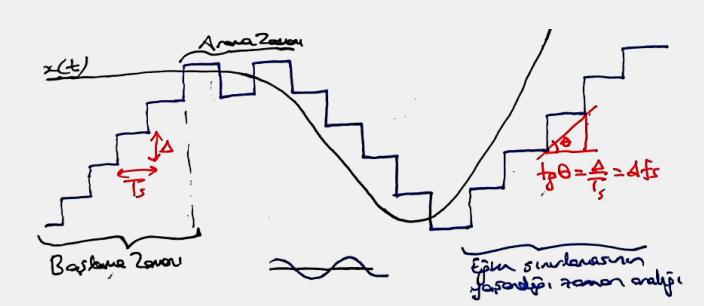 Arama Zamanı
x(t)
Δ
Ts
θ
tgθ = Δ/Ts = Δfs
Başlama Zamanı
Eğim sınırlamasının
yaşandığı zaman aralığı